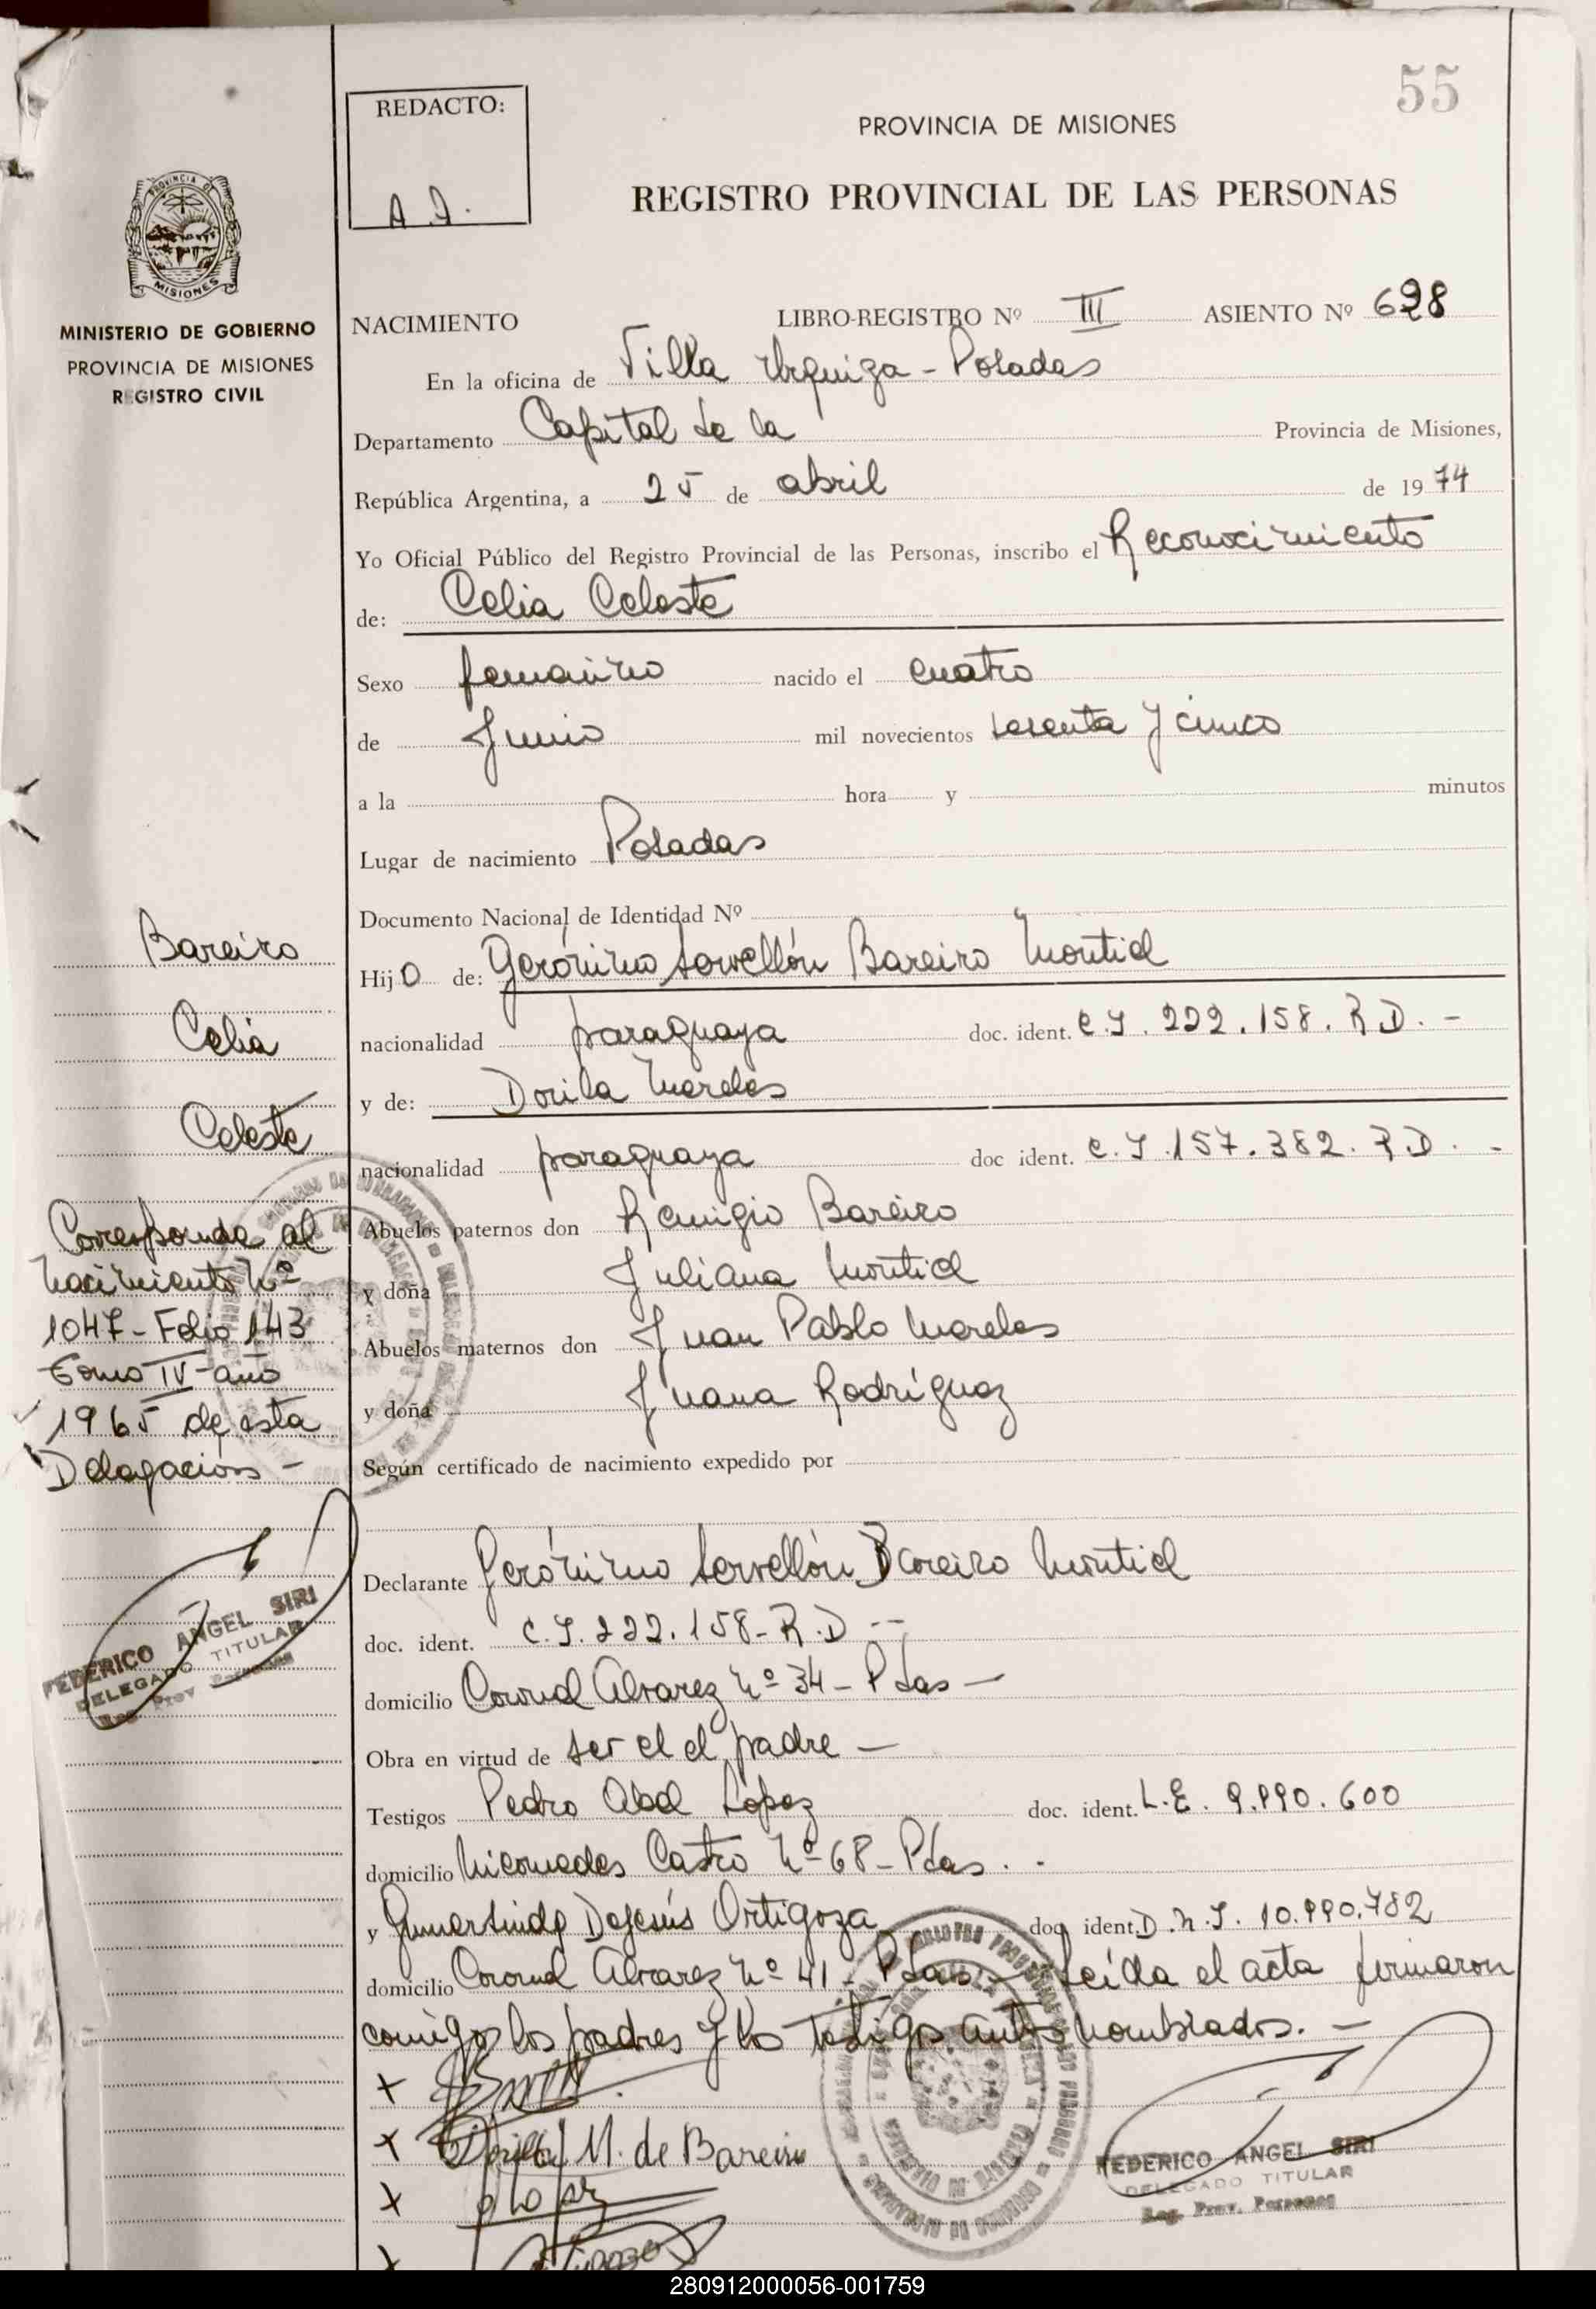 55
REDACTO:
A J.
PROVINCIA DE MISIONES
REGISTRO PROVINCIAL DE LAS PERSONAS
PROVINCIA DE
MISIONES
MINISTERIO DE GOBIERNO
PROVINCIA DE MISIONES
REGISTRO CIVIL
NACIMIENTO LIBRO-REGISTRO Nº III ASIENTO Nº 698
En la oficina de Villa Urquiza - Posadas
Departamento Capital de la Provincia de Misiones,
República Argentina, a 25 de abril de 1974
Yo Oficial Público del Registro Provincial de las Personas, inscribo el Reconocimiento
de: Celia Celeste
Sexo femenino nacido el cuatro
de Junio mil novecientos sesenta y cinco
a la hora y minutos
Lugar de nacimiento Posadas
Documento Nacional de Identidad Nº
Hijo de: Gerónimo Servellón Bareiro Montiel
nacionalidad paraguaya doc. ident. C.I. 222.158. R.D. -
y de: Dorila Mereles
nacionalidad paraguaya doc ident. C.I 157.382. R.D. -
Abuelos paternos don Remigio Bareiro
y doña Juliana Montiel
Abuelos maternos don Juan Pablo Mereles
y doña Juana Rodríguez
Según certificado de nacimiento expedido por
Declarante Gerónimo Servellón Bareiro Montiel
doc. ident. C.I. 222.158- R.D --
domicilio Coronel Alvarez Nº 34 - Pdas -
Obra en virtud de ser el el padre -
Testigos Pedro Abel López doc. ident. L.E. 9.990.600
domicilio Nicomedes Castro Nº 68 - Pdas. .
y Gumersinda DeJesús Ortigoza doc ident. D.N.I. 10.990.782
domicilio Coronel Alvarez Nº 41 - Pdas - Leída el acta firmaron
comigo los padres y los testigos antes nombrados. -
+
+ Dorila M. de Bareiro
+ P Lopez
+
Bareiro
Celia
Celeste
Corresponde al
Nacimiento Nº
1047 - Folio 143
Tomo IV - año
1965 de esta
Delegación -
FEDERICO ANGEL SIRI
DELEGADO TITULAR
Reg. Prov. Personas
FEDERICO ANGEL SIRI
DELEGADO TITULAR
Reg. Prov. Personas
280912000056-001759